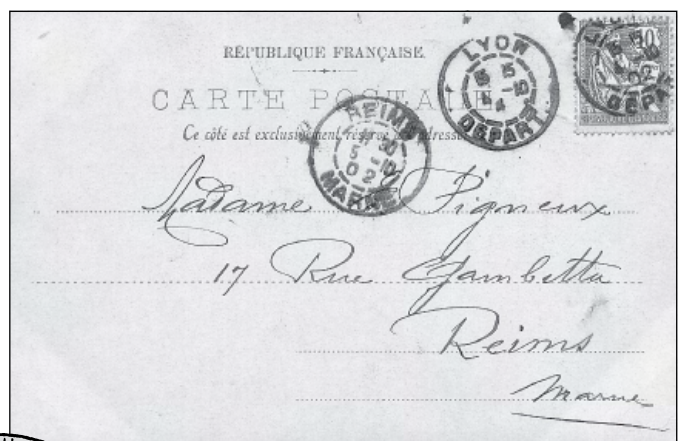 RÉPUBLIQUE FRANÇAISE.
CARTE POSTALE
Ce côté est exclusivement réservé à l'adresse
LYON
15
4
DÉPART
REIMS
5 -10
02
MARNE
02
DÉPA
Madame Pigneux
17 Rue Gambetta
Reims
Marne